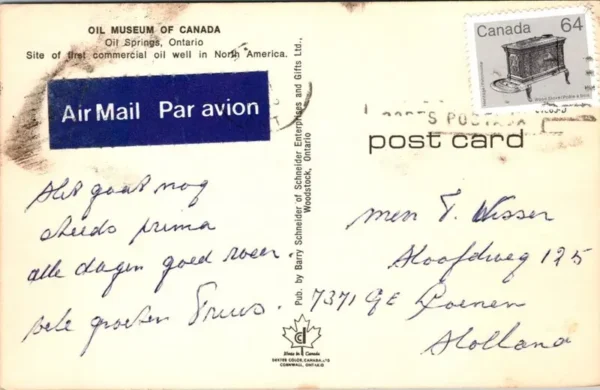 OIL MUSEUM OF CANADA
Oil Springs, Ontario
Site of first commercial oil well in North America.
Air Mail Par avion
CANADA 64
post card
Het gaat nog
steeds prima
alle dagen goed weer.
vele groeten Truus.
Pub. by Barry Schneider of Schneider Enterprises and Gifts Ltd.,
Woodstock, Ontario
T. Visser
Hoofdweg 125
7371 GE Loenen
Holland
Made in Canada
CORNWALL, ONTARIO